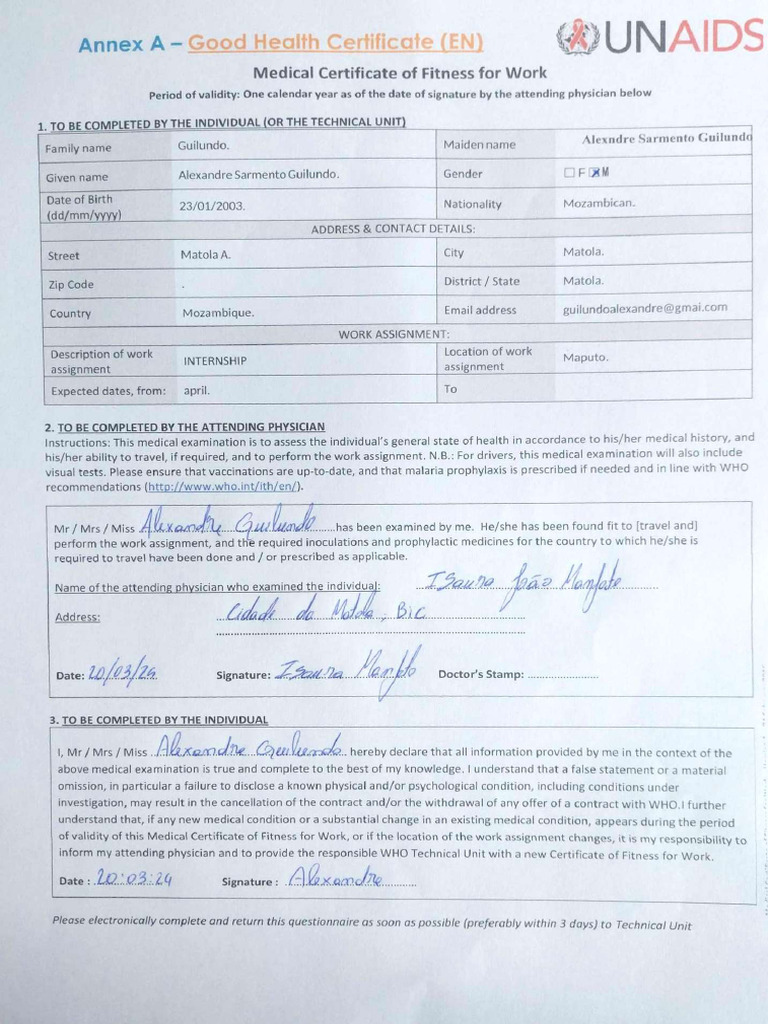 Annex A – Good Health Certificate (EN)
UNAIDS
Medical Certificate of Fitness for Work
Period of validity: One calendar year as of the date of signature by the attending physician below
1. TO BE COMPLETED BY THE INDIVIDUAL (OR THE TECHNICAL UNIT)
Family name Guilundo. Maiden name Alexndre Sarmento Guilundo
Given name Alexandre Sarmento Guilundo. Gender ☐ F ☒ M
Date of Birth (dd/mm/yyyy) 23/01/2003. Nationality Mozambican.
ADDRESS & CONTACT DETAILS:
Street Matola A. City Matola.
Zip Code . District / State Matola.
Country Mozambique. Email address guilundoalexandre@gmai.com
WORK ASSIGNMENT:
Description of work assignment INTERNSHIP Location of work assignment Maputo.
Expected dates, from: april. To
2. TO BE COMPLETED BY THE ATTENDING PHYSICIAN
Instructions: This medical examination is to assess the individual's general state of health in accordance to his/her medical history, and
his/her ability to travel, if required, and to perform the work assignment. N.B.: For drivers, this medical examination will also include
visual tests. Please ensure that vaccinations are up-to-date, and that malaria prophylaxis is prescribed if needed and in line with WHO
recommendations (http://www.who.int/ith/en/).
Mr / Mrs / Miss Alexandre Guilundo has been examined by me. He/she has been found fit to [travel and]
perform the work assignment, and the required inoculations and prophylactic medicines for the country to which he/she is
required to travel have been done and / or prescribed as applicable.
Name of the attending physician who examined the individual: Isaura João Manjate
Address: Cidade da Matola,
Date: 20/03/24 Signature: Isaura Doctor's Stamp:
3. TO BE COMPLETED BY THE INDIVIDUAL
I, Mr / Mrs / Miss Alexandre Guilundo hereby declare that all information provided by me in the context of the
above medical examination is true and complete to the best of my knowledge. I understand that a false statement or a material
omission, in particular a failure to disclose a known physical and/or psychological condition, including conditions under
investigation, may result in the cancellation of the contract and/or the withdrawal of any offer of a contract with WHO.I further
understand that, if any new medical condition or a substantial change in an existing medical condition, appears during the period
of validity of this Medical Certificate of Fitness for Work, or if the location of the work assignment changes, it is my responsibility to
inform my attending physician and to provide the responsible WHO Technical Unit with a new Certificate of Fitness for Work.
Date : 20:03:24 Signature : Alexandre
Please electronically complete and return this questionnaire as soon as possible (preferably within 3 days) to Technical Unit